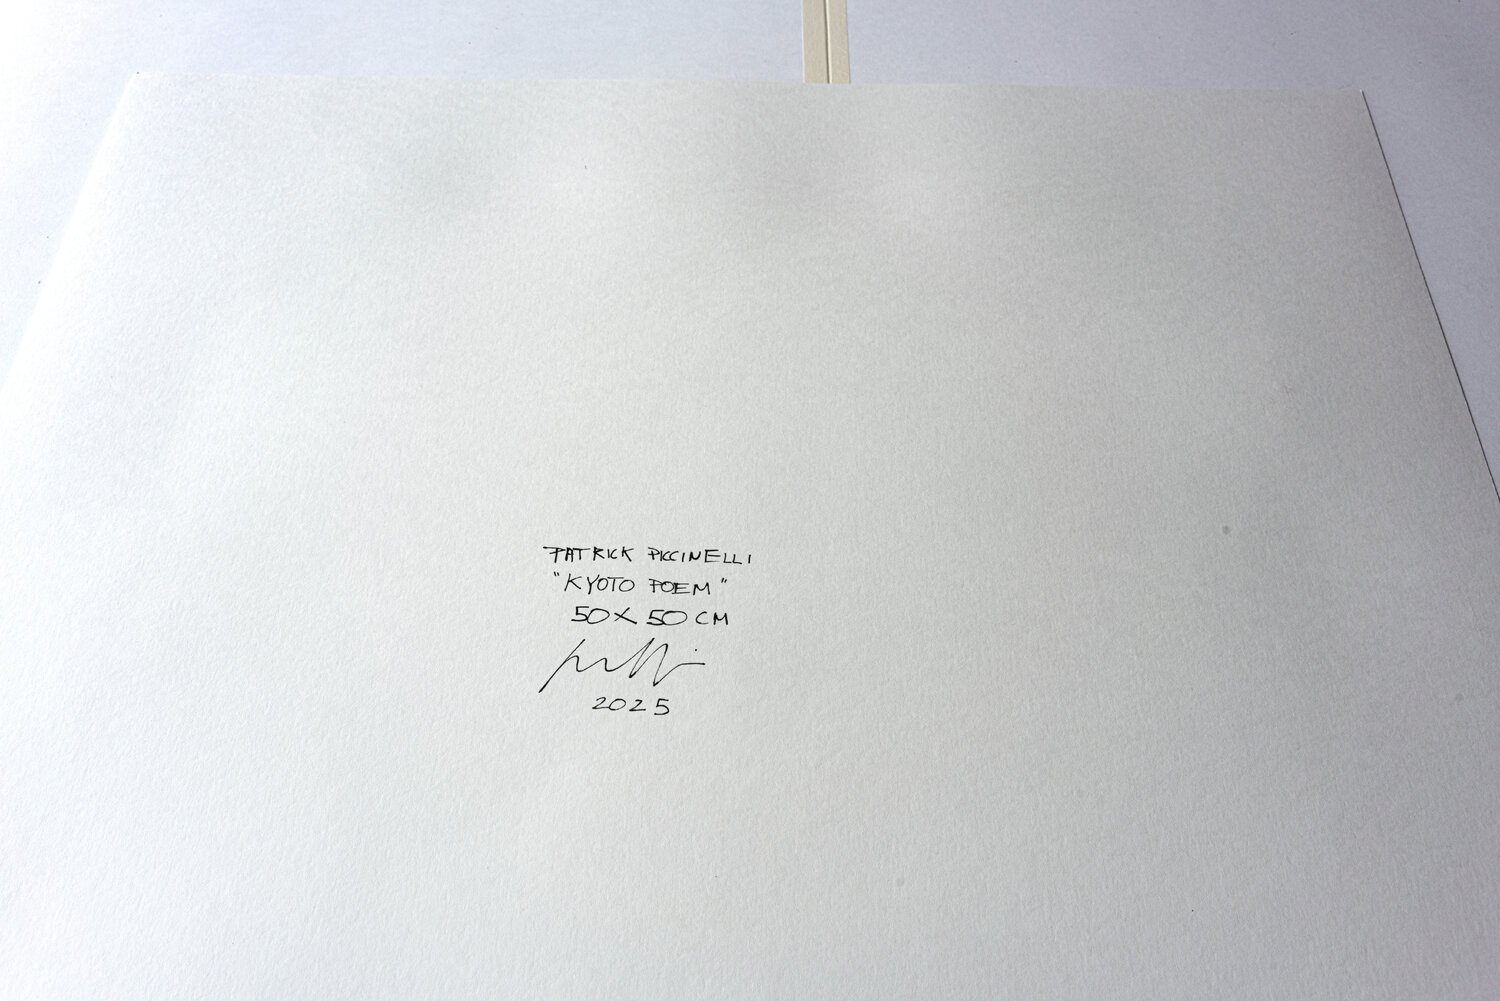 PATRICK PICCINELLI
"KYOTO POEM"
50X50 CM
2025